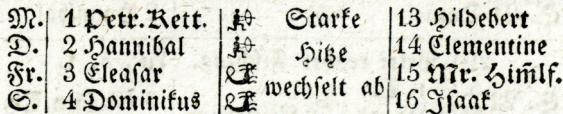 M. 1 Petr. Kett. Starke 13 Hildebert
D. 2 Hannibal Hitze 14 Clementine
Fr. 3 Eleasar wechselt ab 15 Mr. Him̄lf.
S. 4 Dominikus 16 Isaak